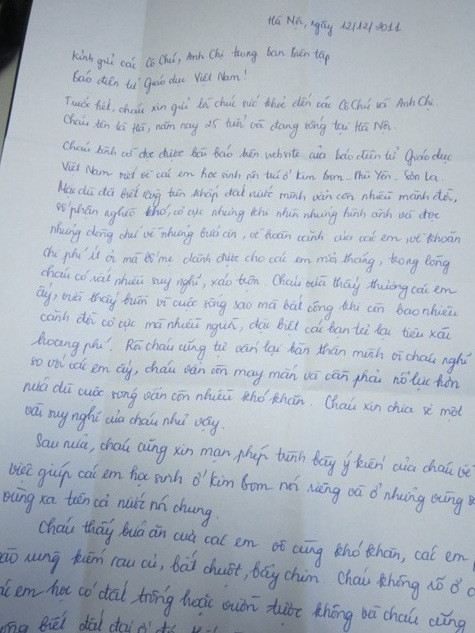 Hà Nội, ngày 12/12/2011
Kính gửi các Cô Chú, Anh Chị trong ban biên tập
Báo điện tử Giáo dục Việt Nam!
Trước hết, cháu xin gửi lời chúc sức khỏe đến các Cô Chú và Anh Chị.
Cháu tên là Hà, năm nay 25 tuổi và đang sống tại Hà Nội.
Cháu tình cờ đọc được bài báo trên website của báo điện tử Giáo dục
Việt Nam viết về các em học sinh nội trú ở Kim Bom - Phù Yên - Sơn La.
Mặc dù đã biết rằng trên khắp đất nước mình vẫn còn nhiều mảnh đời,
số phận nghèo khó, cơ cực nhưng khi nhìn những hình ảnh và đọc
những dòng chữ về những bữa ăn, về hoàn cảnh của các em, về khoản
chi phí ít ỏi mà bố mẹ dành được cho các em mỗi tháng, trong lòng
cháu có rất nhiều suy nghĩ, xáo trộn. Cháu vừa thấy thương các em
ấy, vừa thấy buồn vì cuộc sống sao mà bất công khi còn bao nhiêu
cảnh đời cơ cực mà nhiều người, đặc biệt các bạn trẻ lại tiêu xài
hoang phí. Rồi cháu cũng tự vấn lại bản thân mình vì cháu nghĩ
so với các em ấy, cháu vẫn còn may mắn và cần phải nỗ lực hơn
nữa dù cuộc sống vẫn còn nhiều khó khăn. Cháu xin chia sẻ một
vài suy nghĩ của cháu như vậy.
Sau nữa, cháu cũng xin mạn phép trình bày ý kiến của cháu về
việc giúp các em học sinh ở Kim Bom nói riêng và ở những vùng
vùng xa trên cả nước nói chung.
Cháu thấy bữa ăn của các em vô cùng khó khăn, các em
vào rừng kiếm rau củ, bắt chuột, bẫy chim. Cháu không rõ ở
các em học có đất trống hoặc vườn tược không và cháu cũng
không biết đất đai ở đó